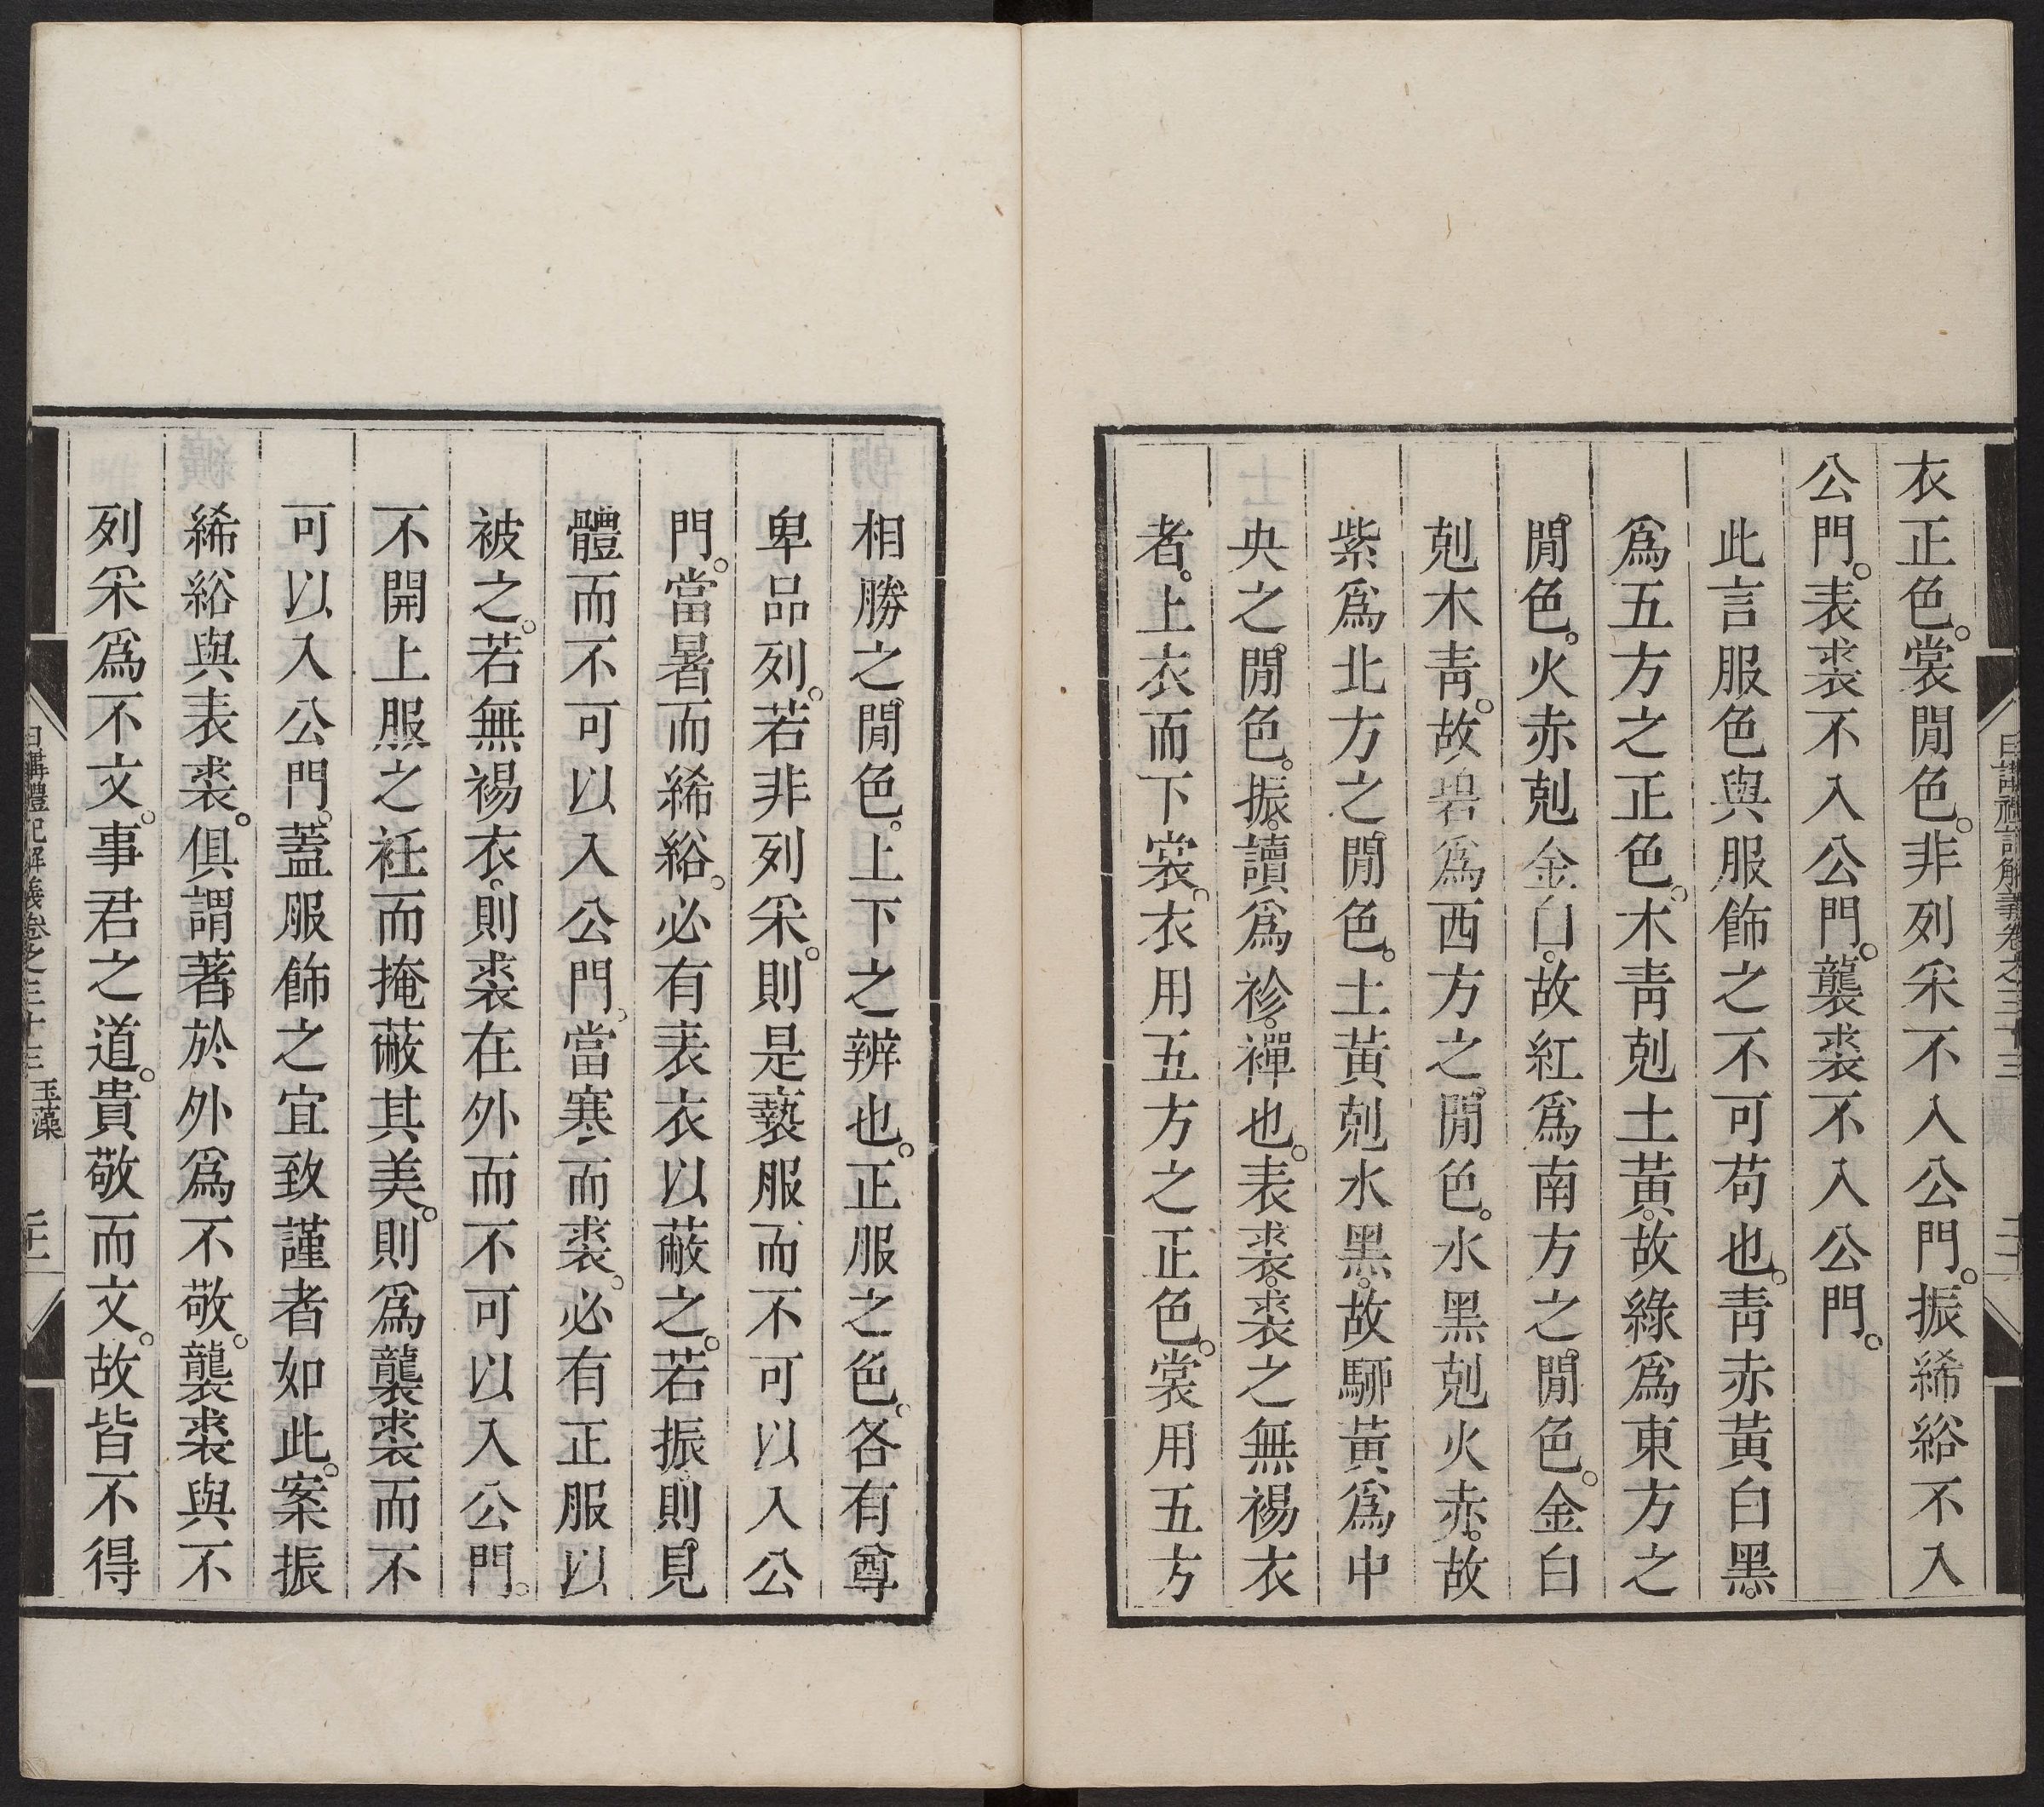 衣正色。裳閒色。非列采不入公門。振絺綌不入
公門。表裘不入公門。襲裘不入公門。
此言服色與服飾之不可苟也。靑赤黃白黑。
爲五方之正色。木靑剋土黃。故綠爲東方之
閒色。火赤剋金白。故紅爲南方之閒色。金白
剋木靑。故碧爲西方之閒色。水黑剋火赤。故
紫爲北方之閒色。土黃剋水黑。故駵黃爲中
央之閒色。振。讀爲袗。襌也。表裘。裘之無裼衣
者。上衣而下裳。衣用五方之正色。裳用五方
日講禮記解義卷之三十三
相勝之閒色。上下之辨也。正服之色。各有尊
卑品列。若非列采。則是褻服而不可以入公
門。當暑而絺綌。必有表衣以蔽之。若振則見
體而不可以入公門。當寒而裘。必有正服以
被之。若無裼衣。則裘在外而不可以入公門。
不開上服之衽而掩蔽其美。則爲襲裘而不
可以入公門。蓋服飾之宜致謹者如此。案振
絺綌與表裘。俱謂著於外爲不敬。襲裘與不
列采爲不文。事君之道。貴敬而文。故皆不得
日講禮記解義卷之三十三 玉藻